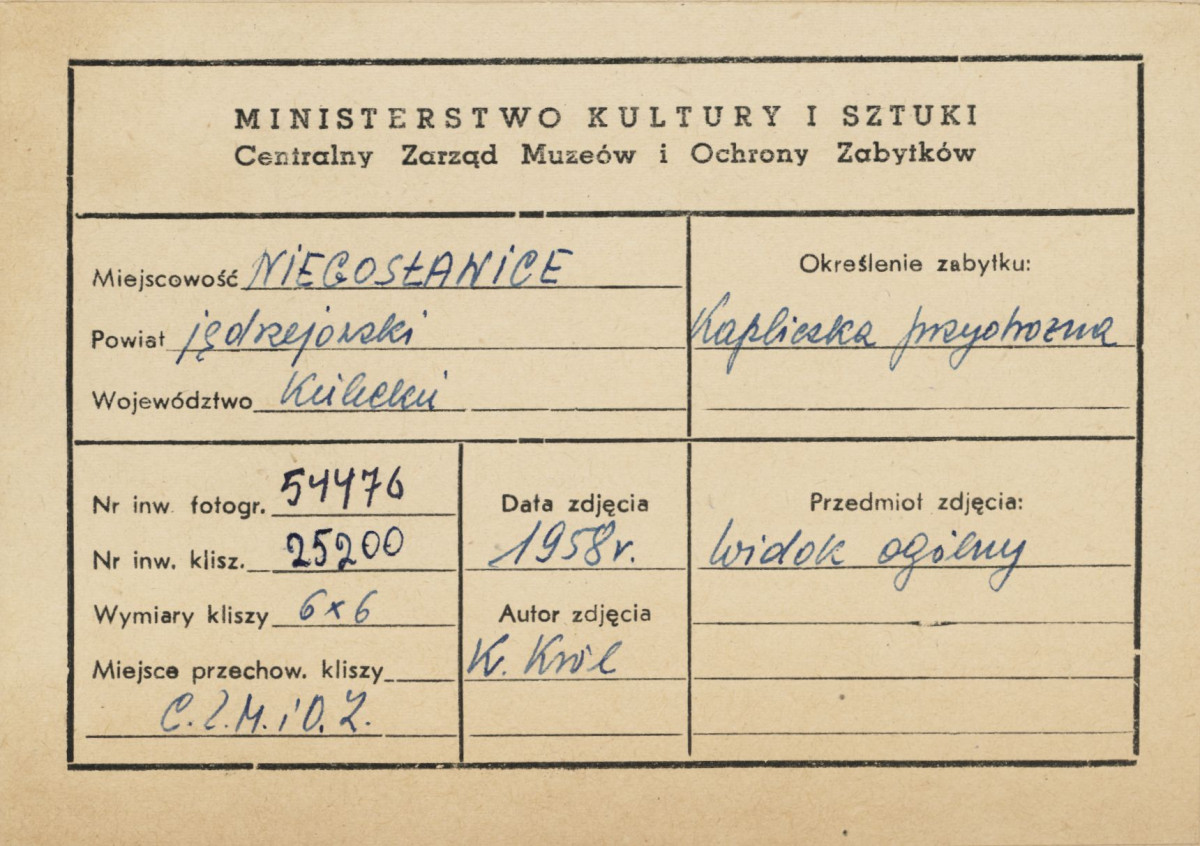 MINISTERSTWO KULTURY I SZTUKI
Centralny Zarząd Muzeów i Ochrony Zabytków
Miejscowość NIEGOSŁAWICE
Powiat jędrzejowski
Województwo Kieleckie
Określenie zabytku:
Kapliczka przydrożna
Nr inw. fotogr. 54476
Nr inw. klisz. 25200
Wymiary kliszy 6x6
Miejsce przechow. kliszy
C.Z.M. i O.Z.
Data zdjęcia
1958 r.
Autor zdjęcia
K. Król
Przedmiot zdjęcia:
widok ogólny